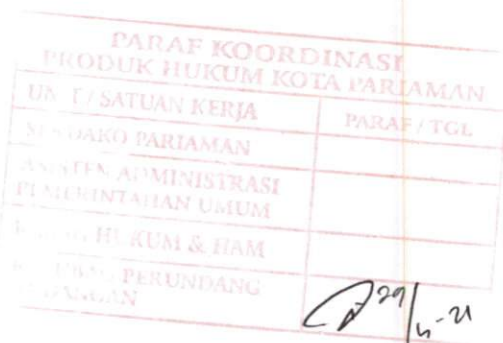 PARAF KOORDINASI
PRODUK HUKUM KOTA PARIAMAN
UNIT / SATUAN KERJA PARAF / TGL
PARIAMAN
ASISTEN ADMINISTRASI
PEMERINTAHAN UMUM
HUKUM & HAM
PERUNDANG
29/